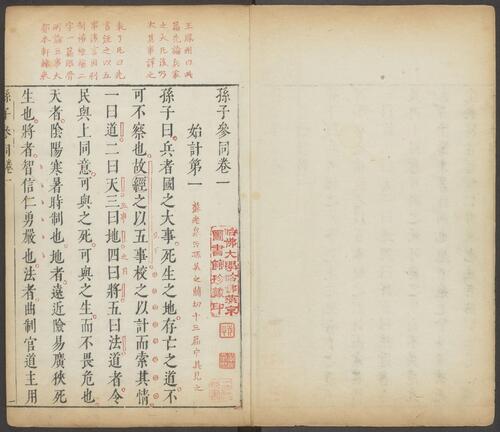 王鳳州曰此
篇先論兵家
之大凡後乃
孫子參同卷一
始計第一
蘇老泉云孫吳之簡切十三篇中具見之
哈佛大學哈佛燕京
圖書館珍藏印
孫子曰兵者國之大事死生之地存亡之道不
可不察也故經之以五事校之以計而索其情
一曰道二曰天三曰地四曰將五曰法道者令
民與上同意可與之死可與之生而不畏危也
天者陰陽寒暑時制也地者遠近險易廣狹死
生也將者智信仁勇嚴也法者曲制官道主用
孫子參同卷一